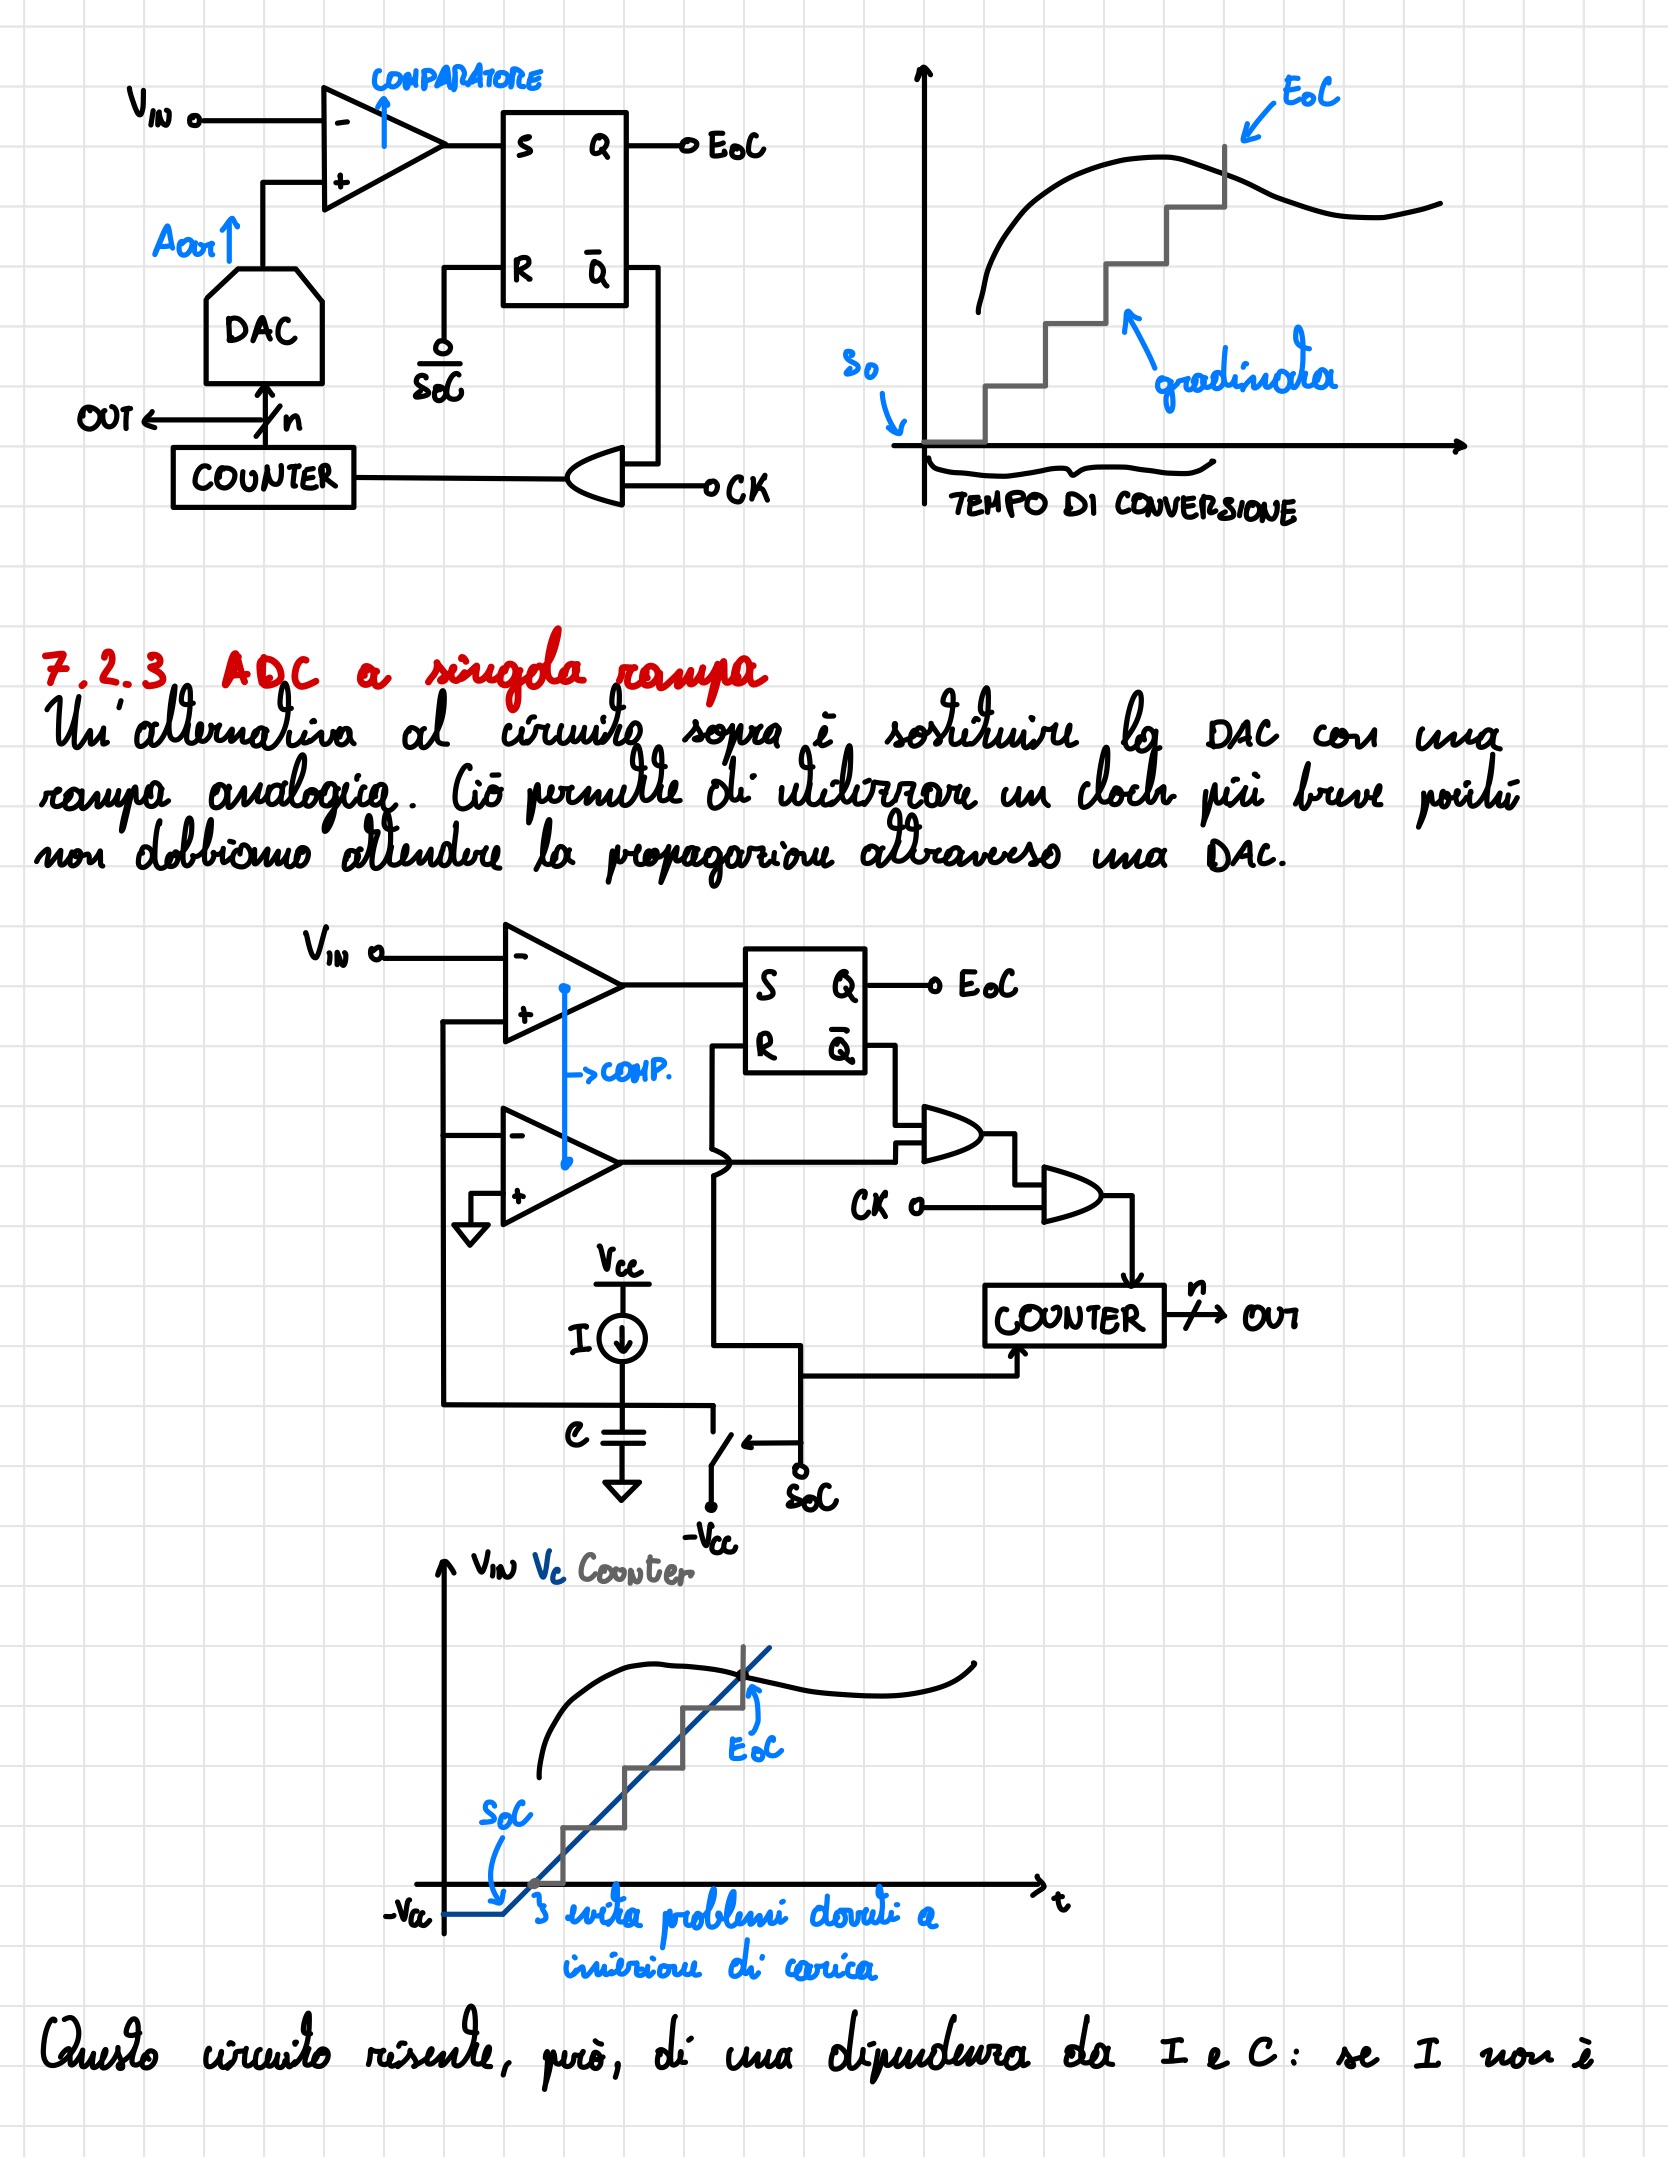 COMPARATORE
VIN
-
+
S Q
EOC
R Q̅
AOUT
DAC
S̅O̅C̅
OUT
n
COUNTER
CK
EOC
SO
gradinata
TEMPO DI CONVERSIONE
7.2.3 ADC a singola rampa
Un'alternativa al circuito sopra è sostituire la DAC con una
rampa analogica. Ciò permette di utilizzare un clock più breve poiché
non dobbiamo attendere la propagazione attraverso una DAC.
VIN
-
+
S Q
EOC
R Q̅
COMP.
-
+
CK
VCC
I
COUNTER
n
OUT
C
SOC
-VCC
VIN VC Counter
EOC
SOC
-VCC
t
evita problemi dovuti a
iniezione di carica
Questo circuito risente, però, di una dipendenza da I e C: se I non è